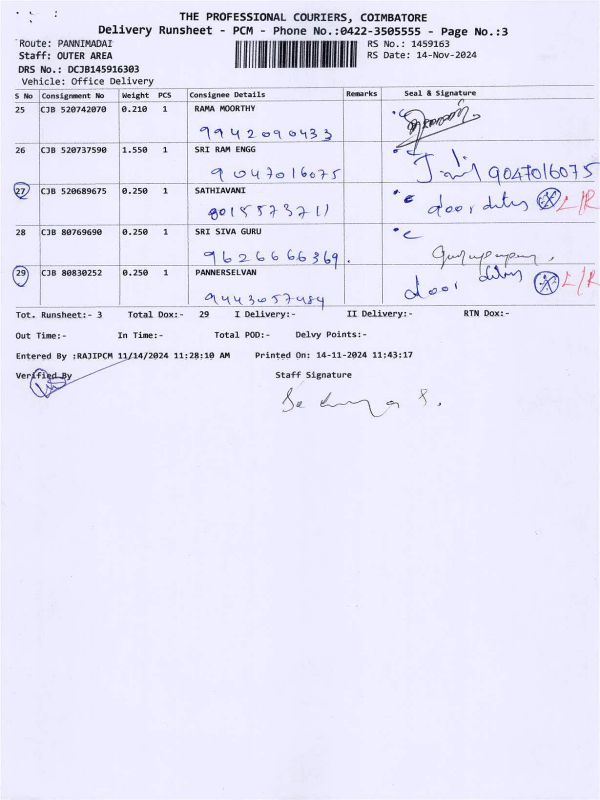 THE PROFESSIONAL COURIERS, COIMBATORE
Delivery Runsheet - PCM - Phone No.:0422-3505555 - Page No.:3
Route: PANNIMADAI RS No.: 1459163
Staff: OUTER AREA RS Date: 14-Nov-2024
DRS No.: DCJB145916303
Vehicle: Office Delivery
S No Consignment No Weight PCS Consignee Details Remarks Seal & Signature
25 CJB 520742070 0.210 1 RAMA MOORTHY
9942090433
26 CJB 520737590 1.550 1 SRI RAM ENGG
9047016075 9047016075
27 CJB 520689675 0.250 1 SATHIAVANI
8015573711 door L/R
28 CJB 80769690 0.250 1 SRI SIVA GURU
9626666369.
29 CJB 80830252 0.250 1 PANNERSELVAN
9443057484 door L/R
Tot. Runsheet:- 3 Total Dox:- 29 I Delivery:- II Delivery:- RTN Dox:-
Out Time:- In Time:- Total POD:- Delvy Points:-
Entered By :RAJIPCM 11/14/2024 11:28:10 AM Printed On: 14-11-2024 11:43:17
Verified By Staff Signature